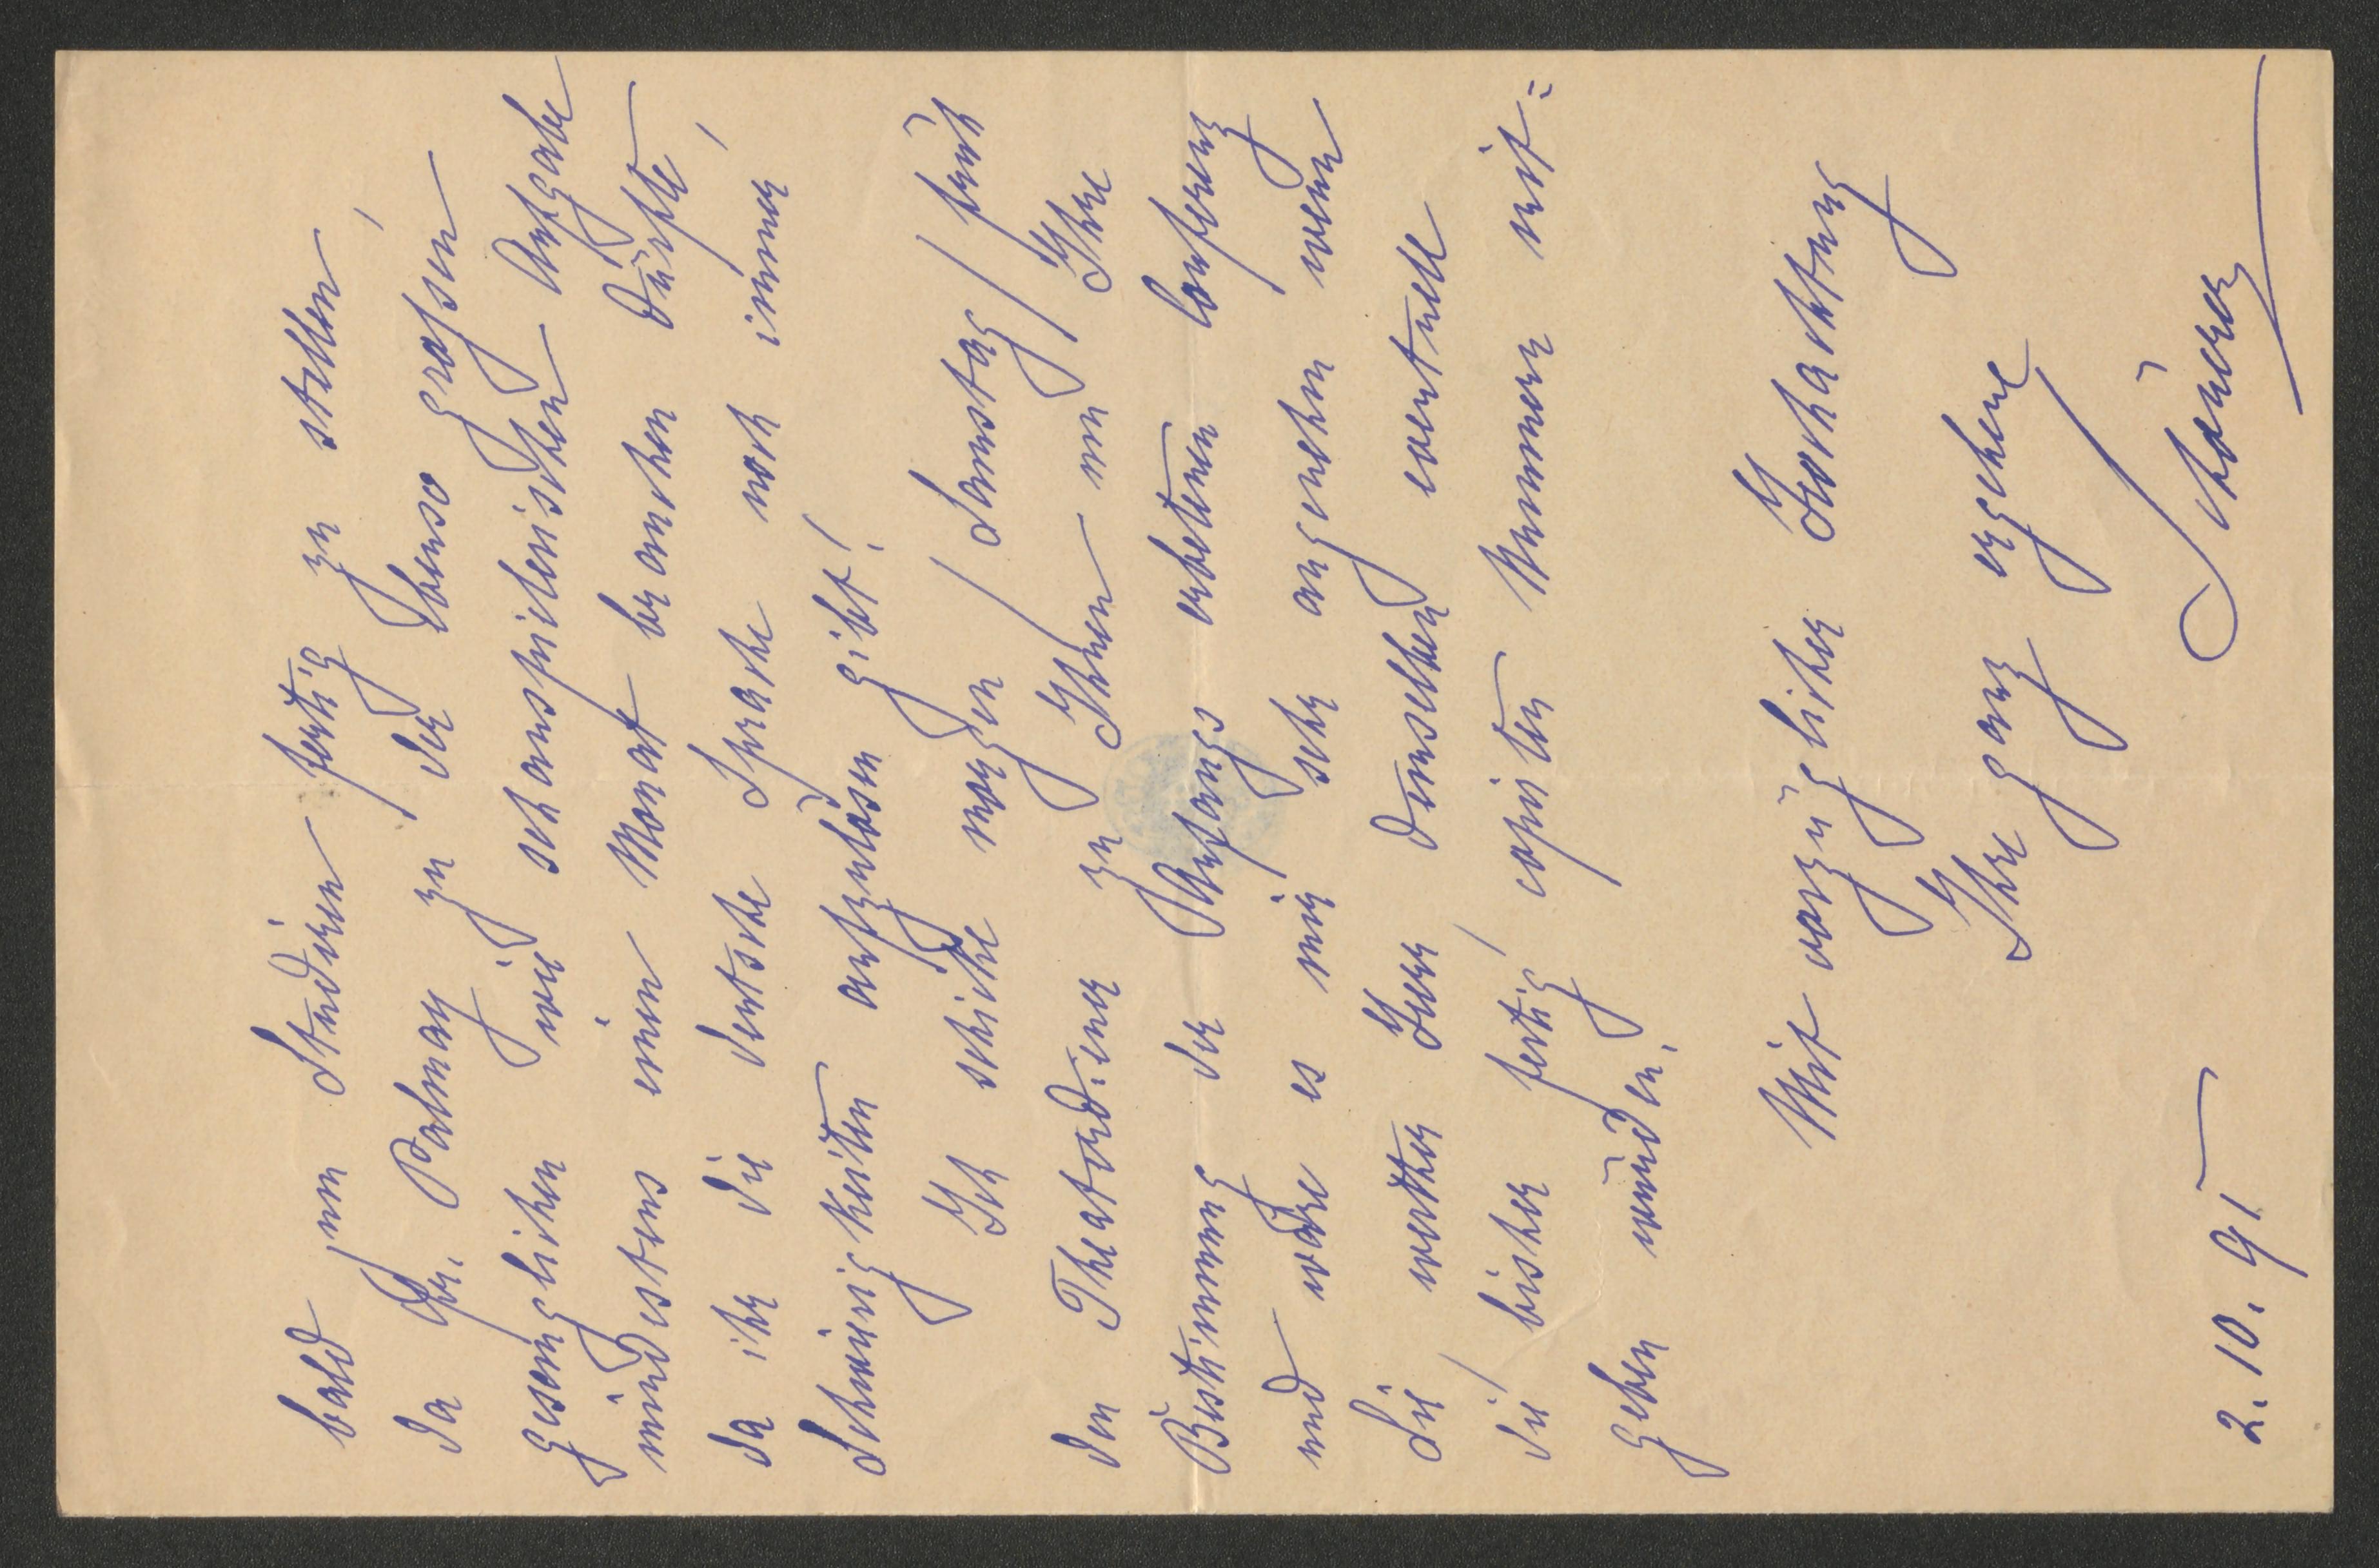 bald zum Studieren fertig zu stellen,
da Fr. Palmay zu der Ebenso großen
gesanglichen wie schauspielerischen Aufgabe
mindestens einen Monat brauchen dürfte,
da ihr die deutsche Sprache noch immer
Schwierigkeiten aufzulösen gibt!
Ich schicke morgen / Samstag / früh
den Theaterdiener zu Ihnen um Ihre
Bestimmung der Anfangs erbetenen Conferenz
und wäre es mir sehr angenehm wenn
Sie werther Herr demselben eventuell
die / bisher fertig / copirten Nummern mit=
geben würden.
Mit vorzüglicher Hochachtung
Ihre ganz ergebene
Schönerer
2. 10. 91